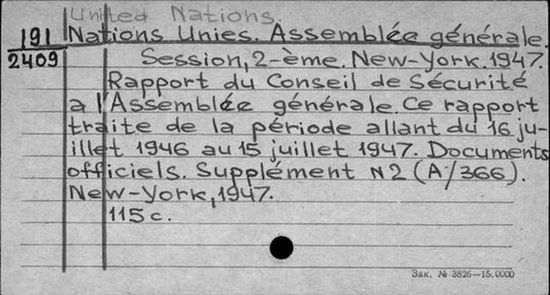 United Nations.
191 Nations Unies. Assemblée générale.
2409 Session, 2-ème. New-York. 1947.
Rapport du Conseil de Sécurité
a l'Assemblée générale. Ce rapport
traite de la période allant du 16 ju-
illet 1946 au 15 juillet 1947. Documents
officiels. Supplément N 2 (A/366).
New-York, 1947.
115 c.
Зак. № 3826—15.0000